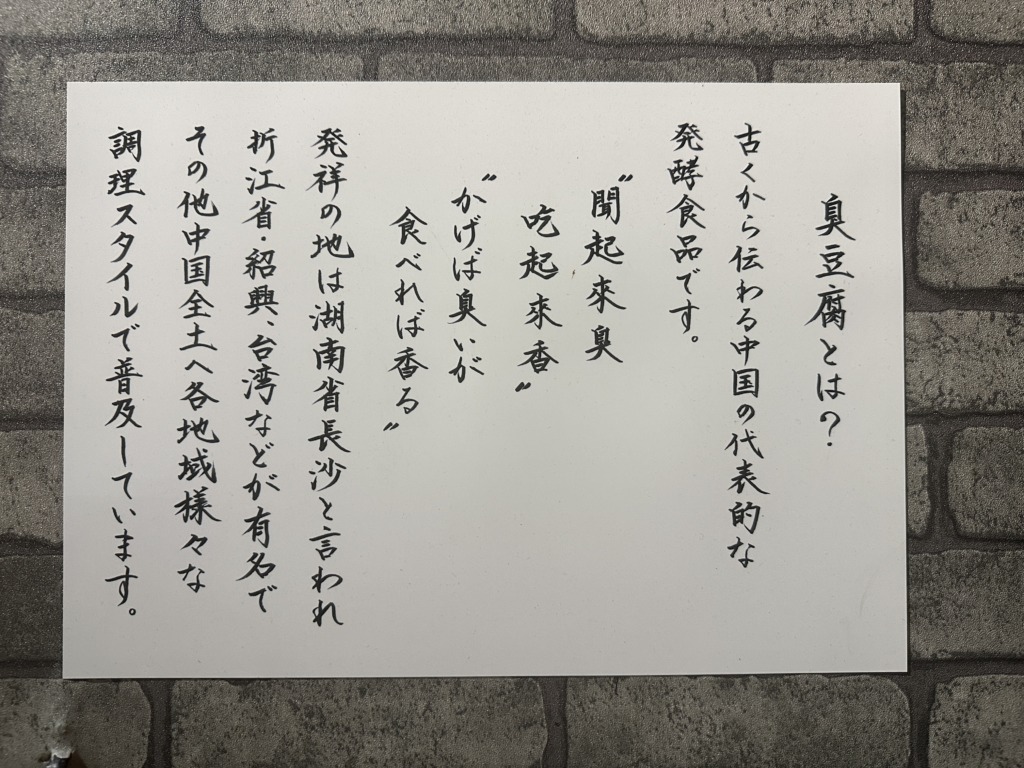 臭豆腐とは?
古くから伝わる中国の代表的な
発酵食品です。
"聞起來臭
吃起來香"
"かげば臭いが
食べれば香る"
発祥の地は湖南省長沙と言われ
折江省・紹興、台湾などが有名で
その他中国全土へ各地域様々な
調理スタイルで普及しています。